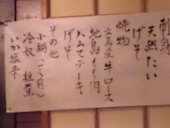 刺身
天然たい
げそ
焼物
広島産牛ロース
地鳥もも肉
ハムステーキ
げそ
その他
小鍋
冷奴
いか塩辛